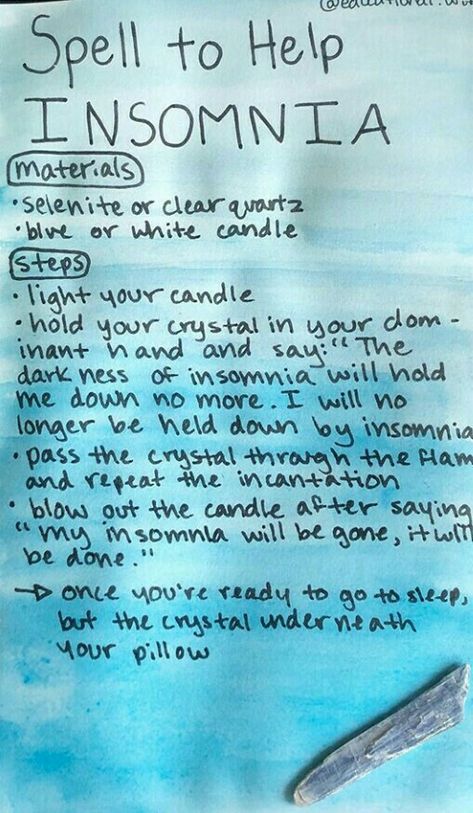 Spell to Help
INSOMNIA
materials
• selenite or clear quartz
• blue or white candle
steps
• light your candle
• hold your crystal in your dom-
inant hand and say: "The
darkness of insomnia will hold
me down no more. I will no
longer be held down by insomnia
• pass the crystal through the flam
and repeat the incantation
• blow out the candle after saying
"my insomnia will be gone, it will
be done."
→ once you're ready to go to sleep,
but the crystal underneath
your pillow